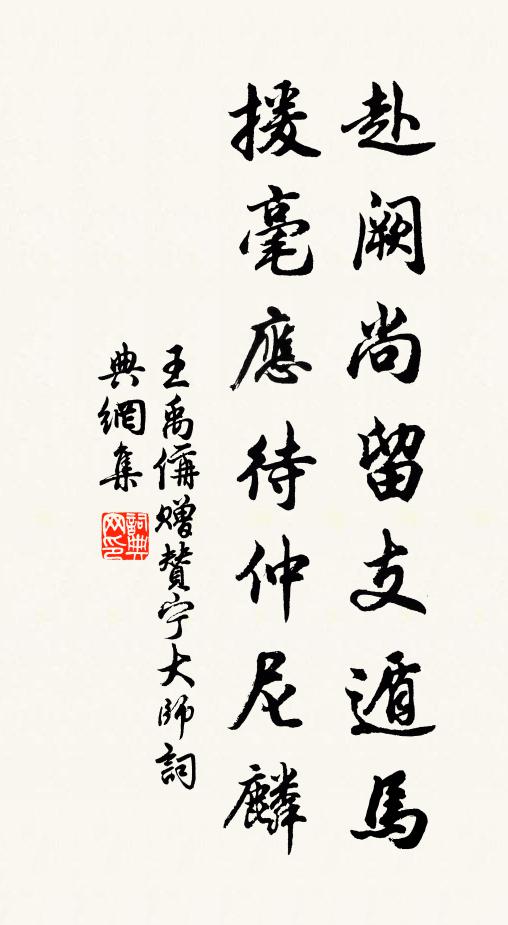 赴阙尚留支遁馬
援毫應待仲尼麟
王禹偁贈贊宁大師詞
典網集
詞典
网印